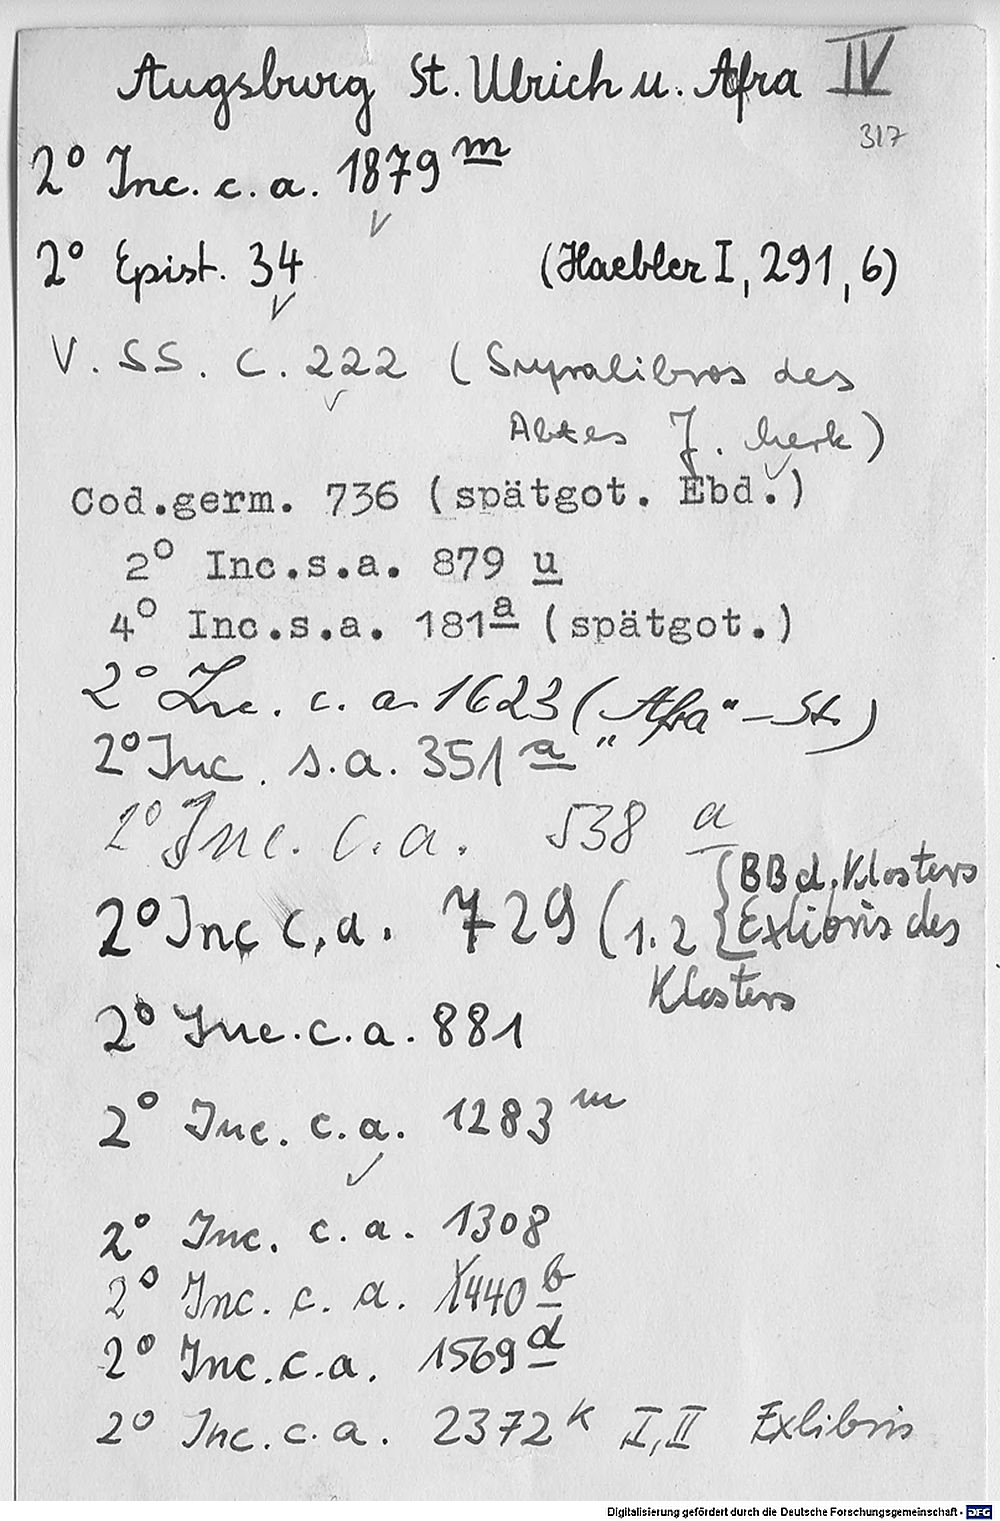 Augsburg St. Ulrich u. Afra IV
317
2° Inc. c. a. 1879 m
2° Epist. 34 (Haebler I, 291, 6)
V. SS. C. 222 (Supralibros des
Abtes J. Merk)
Cod.germ. 736 (spätgot. Ebd.)
2° Inc.s.a. 879 u
4° Inc.s.a. 181a (spätgot.)
2° Inc. c. a. 1623 („Afra“-St.)
2° Inc. s.a. 351 a
2° Inc. c. a. 538 a
2° Inc c. a. 729 (1.2 { BB d. Klosters
Exlibris des
Klosters
2° Inc. c. a. 881
2° Inc. c. a. 1283 m
2° Inc. c. a. 1308
2° Inc. c. a. 1440 b
2° Inc. c. a. 1569 d
2° Inc. c. a. 2372 k I, II Exlibris
Digitalisierung gefördert durch die Deutsche Forschungsgemeinschaft - DFG